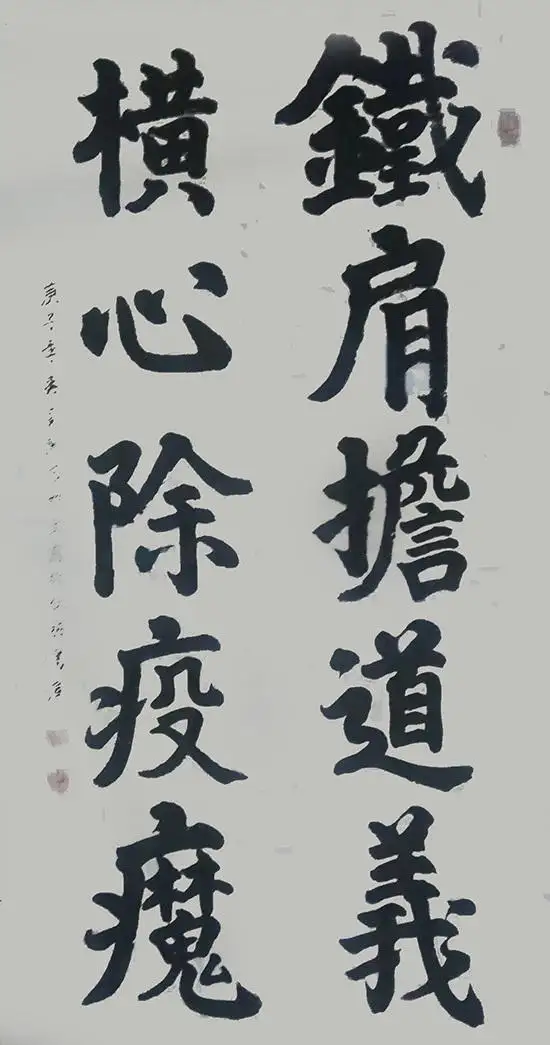 鐵肩擔道義
橫心除疫魔
庚子